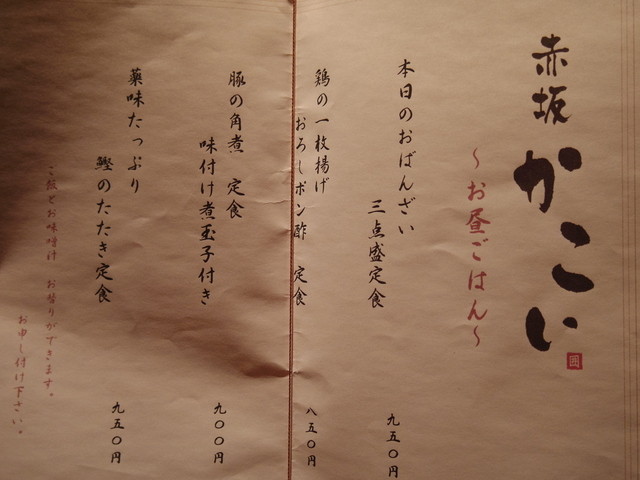 赤坂
かこい
囲
〜お昼ごはん〜
本日のおばんざい
三点盛定食
九五〇円
鶏の一枚揚げ
おろしポン酢 定食
八五〇円
豚の角煮 定食
味付け煮玉子付き
九〇〇円
薬味たっぷり
鰹のたたき定食
九五〇円
ご飯とお味噌汁 お替りができます。
お申し付け下さい。